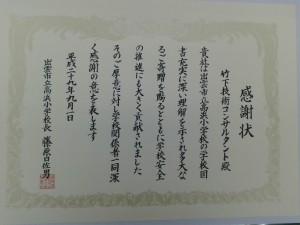 感謝状
竹下技術コンサルタント殿
貴社は出雲市立高浜小学校の学校図
書充実に深い理解を示され多大な
るご寄贈を賜るとともに学校安全
の推進にも大きく貢献されました
そのご厚意に対し学校関係者一同深
く感謝の意を表します
平成二十九年九月一日
出雲市立高浜小学校長 藤原日佐男